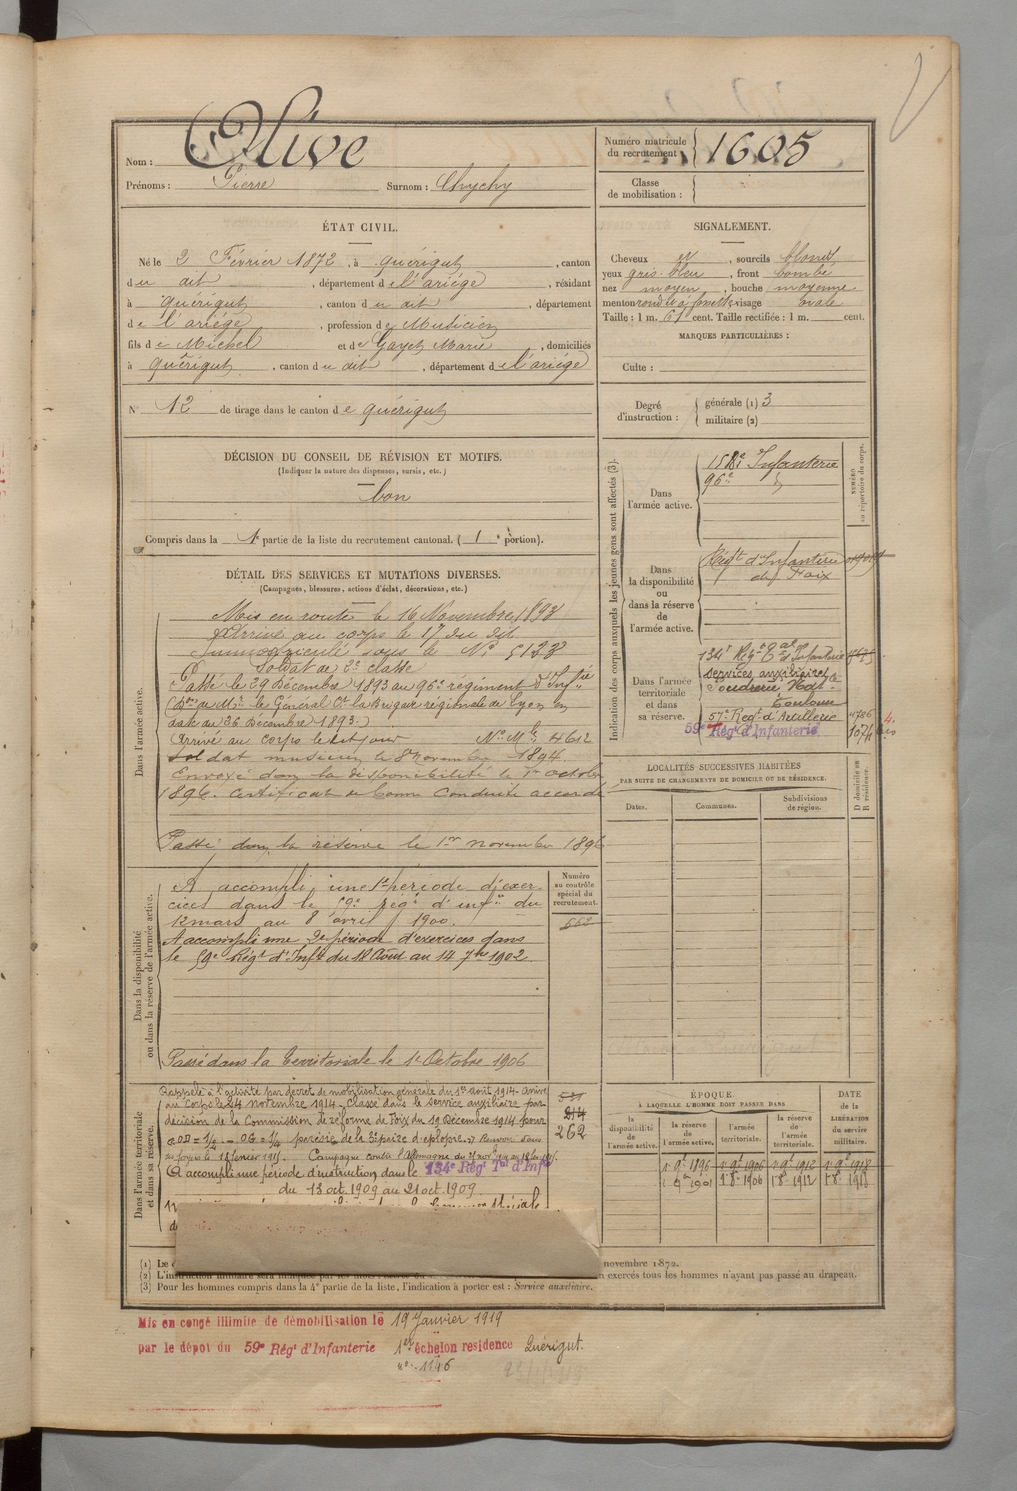 Nom : Olive
Prénoms : Pierre Surnom : Chychy
Numéro matricule du recrutement 1605
Classe de mobilisation :
ÉTAT CIVIL.
Né le 2 Février 1872, à Quérigut, canton
du dit, département de l'ariége, résidant
à Quérigut, canton du dit, département
de l'ariége, profession de Musicien
fils de Michel et de Gayet Marie, domiciliés
à Quérigut, canton du dit, département de l'ariége
N° 12 de tirage dans le canton de Quérigut
SIGNALEMENT.
Cheveux et, sourcils blonds
yeux gris bleu, front bombé
nez moyen, bouche moyenne
menton rond à fossette visage ovale
Taille : 1 m. 61 cent. Taille rectifiée : 1 m. cent.
MARQUES PARTICULIÈRES :
Culte :
Degré d'instruction : générale (1) 3
militaire (2)
DÉCISION DU CONSEIL DE RÉVISION ET MOTIFS.
(Indiquer la nature des dispenses, sursis, etc.)
bon
Compris dans la 1e partie de la liste du recrutement cantonal. (1e portion).
DÉTAIL DES SERVICES ET MUTATIONS DIVERSES.
(Campagnes, blessures, actions d'éclat, décorations, etc.)
Dans l'armée active.
Mis en route le 16 Novembre 1893
Arrivé au corps le 17 du dit
Immatriculé sous le N° 5133
Soldat de 2e classe
Passé le 29 Décembre 1893 au 96e régiment d'Infie
le Général Ct la Brigade régionale de Lyon en
date du 26 Décembre 1893.)
Arrivé au corps le dit jour N° Mle 4612
Soldat musicien le 8 novembre 1894.
Envoyé dans la disponibilité le 1er octobre
1896. Certificat de bonne conduite accordé
Passé dans la réserve le 1er novembre 1896
Dans la disponibilité ou dans la réserve de l'armée active.
A accompli une 1e période d'exer-
cices dans le 59e régt d'infie du
12 mars au 8 avril 1900.
A accompli une 2e période d'exercices dans
le 59e Régt d'Infie du 18 Août au 14 7bre 1902
Passé dans la territoriale le 1er Octobre 1906
Numéro au contrôle spécial du recrutement.
662
Dans l'armée territoriale et dans sa réserve.
Rappelé à l'activité par décret de mobilisation générale du 1er août 1914. Arrivé
au Corps le 24 novembre 1914. Classé dans le service auxiliaire par
décision de la Commission de réforme de Foix du 19 Décembre 1914 pour
OD = 1/4 - OG = 1/4
Campagne contre l'Allemagne du
A accompli une période d'instruction dans le 134e Régt Tal d'Infie
du 13 oct. 1909 au 21 oct. 1909.
262
Indication des corps auxquels les jeunes gens sont affectés (3).
NUMÉRO au répertoire du corps.
Dans l'armée active.
158e Infanterie
96e
Dans la disponibilité ou dans la réserve de l'armée active.
Régt d'Infanterie de Foix
Dans l'armée territoriale et dans sa réserve.
134e Régt Tal d'Infanterie
services auxiliaires
Poudrerie Natle
Toulouse
57e Régt d'Artillerie 4786
59e Rég d'Infanterie
LOCALITÉS SUCCESSIVES HABITÉES
PAR SUITE DE CHANGEMENTS DE DOMICILE OU DE RÉSIDENCE.
Dates. Communes. Subdivisions de région. D domicile ou R résidence.
ÉPOQUE
À LAQUELLE L'HOMME DOIT PASSER DANS
la disponibilité de l'armée active.
la réserve de l'armée active.
l'armée territoriale.
la réserve de l'armée territoriale.
DATE de la LIBÉRATION du service militaire.
1er 9bre 1896 1er 9bre 1906 1er 9bre 1912 1er 9bre 1918
1906 1912 1918
(1) Le
novembre 1872.
(2)
n exercés tous les hommes n'ayant pas passé au drapeau.
(3) Pour les hommes compris dans la 4e partie de la liste, l'indication à porter est : Service auxiliaire.
Mis en congé illimité de démobilisation le 19 Janvier 1919
par le dépot du 59e Régt d'Infanterie 1er échelon residence Quérigut.
n° 1146